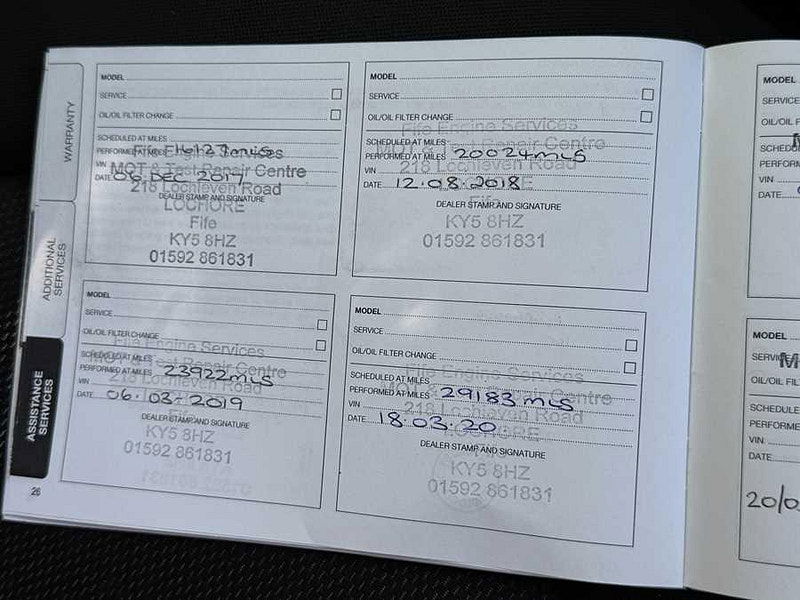 WARRANTY
ADDITIONAL
SERVICES
ASSISTANCE
SERVICES
26
MODEL
SERVICE
OIL/OIL FILTER CHANGE
SCHEDULED AT MILES
PERFORMED AT MILES 16127 mls
VIN
DATE 06. DEC 2017
DEALER STAMP AND SIGNATURE
Fife Engine Services
MOT & Test Repair Centre
218 Lochleven Road
LOCHORE
Fife
KY5 8HZ
01592 861831
MODEL
SERVICE
OIL/OIL FILTER CHANGE
SCHEDULED AT MILES
PERFORMED AT MILES 20024 mls
VIN
DATE 12.08.2018
DEALER STAMP AND SIGNATURE
Fife Engine Services
MOT & Test Repair Centre
218 Lochleven Road
LOCHORE
Fife
KY5 8HZ
01592 861831
MODEL
SERVICE
OIL/OIL FILTER CHANGE
SCHEDULED AT MILES
PERFORMED AT MILES 23922 mls
VIN
DATE 06.03.2019
DEALER STAMP AND SIGNATURE
Fife Engine Services
MOT & Test Repair Centre
218 Lochleven Road
LOCHORE
Fife
KY5 8HZ
01592 861831
MODEL
SERVICE
OIL/OIL FILTER CHANGE
SCHEDULED AT MILES
PERFORMED AT MILES 29183 mls
VIN
DATE 18.03.20
DEALER STAMP AND SIGNATURE
Fife Engine Services
MOT & Test Repair Centre
218 Lochleven Road
LOCHORE
Fife
KY5 8HZ
01592 861831
MODEL
SERVICE
OIL/OIL F
SCHEDU
PERFORM
VIN
DATE
MODEL
SERVICE
OIL/OIL FIL
SCHEDULE
PERFORME
VIN
DATE
20/0